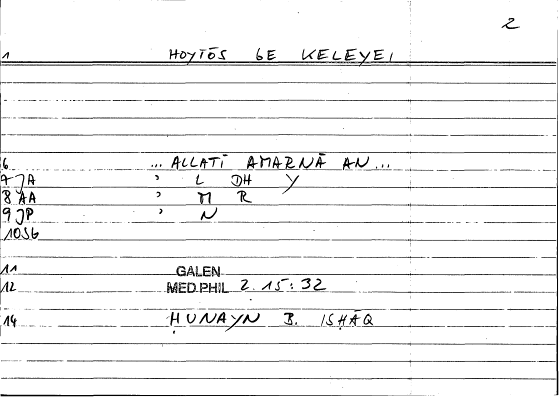 2
1 HOYTŌS GE KELEYEI
6 ... ALLATĪ AMARNĀ AN ...
7 JA ' L DH Y
8 AA ' M R
9 JP ' N
10 SG
11 GALEN
12 MED.PHIL 2.15:32
14 ḤUNAYN B. ISḤĀQ